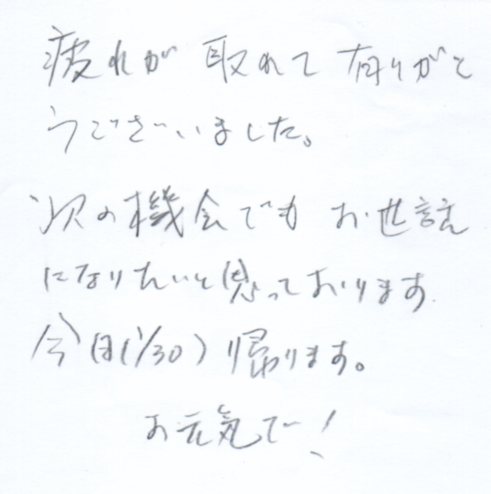 疲れが取れて有りがと
うございました。
次の機会でもお世話
になりたいと思っております
今日(1/30)帰ります。
お元気で!